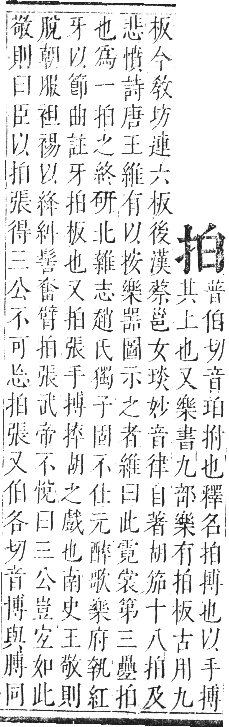 拍
普伯切音珀拊也釋名拍搏也以手搏
其上也又樂書九部樂有拍板古用九
板今敎坊連六板後漢蔡邕女琰妙音律自著胡笳十八拍及
悲憤詩唐王維有以按樂器圖示之者維曰此霓裳第三疊拍
也爲一拍之終研北雜志趙氏獨子固不仕元醉歌樂府執紅
牙以節曲註牙拍板也又拍張手搏捽胡之戲也南史王敬則
脫朝服袒裼以絳糾髻奮臂拍張武帝不悅曰三公豈宐如此
敬則曰臣以拍張得三公不可忘拍張又伯各切音博與膊同